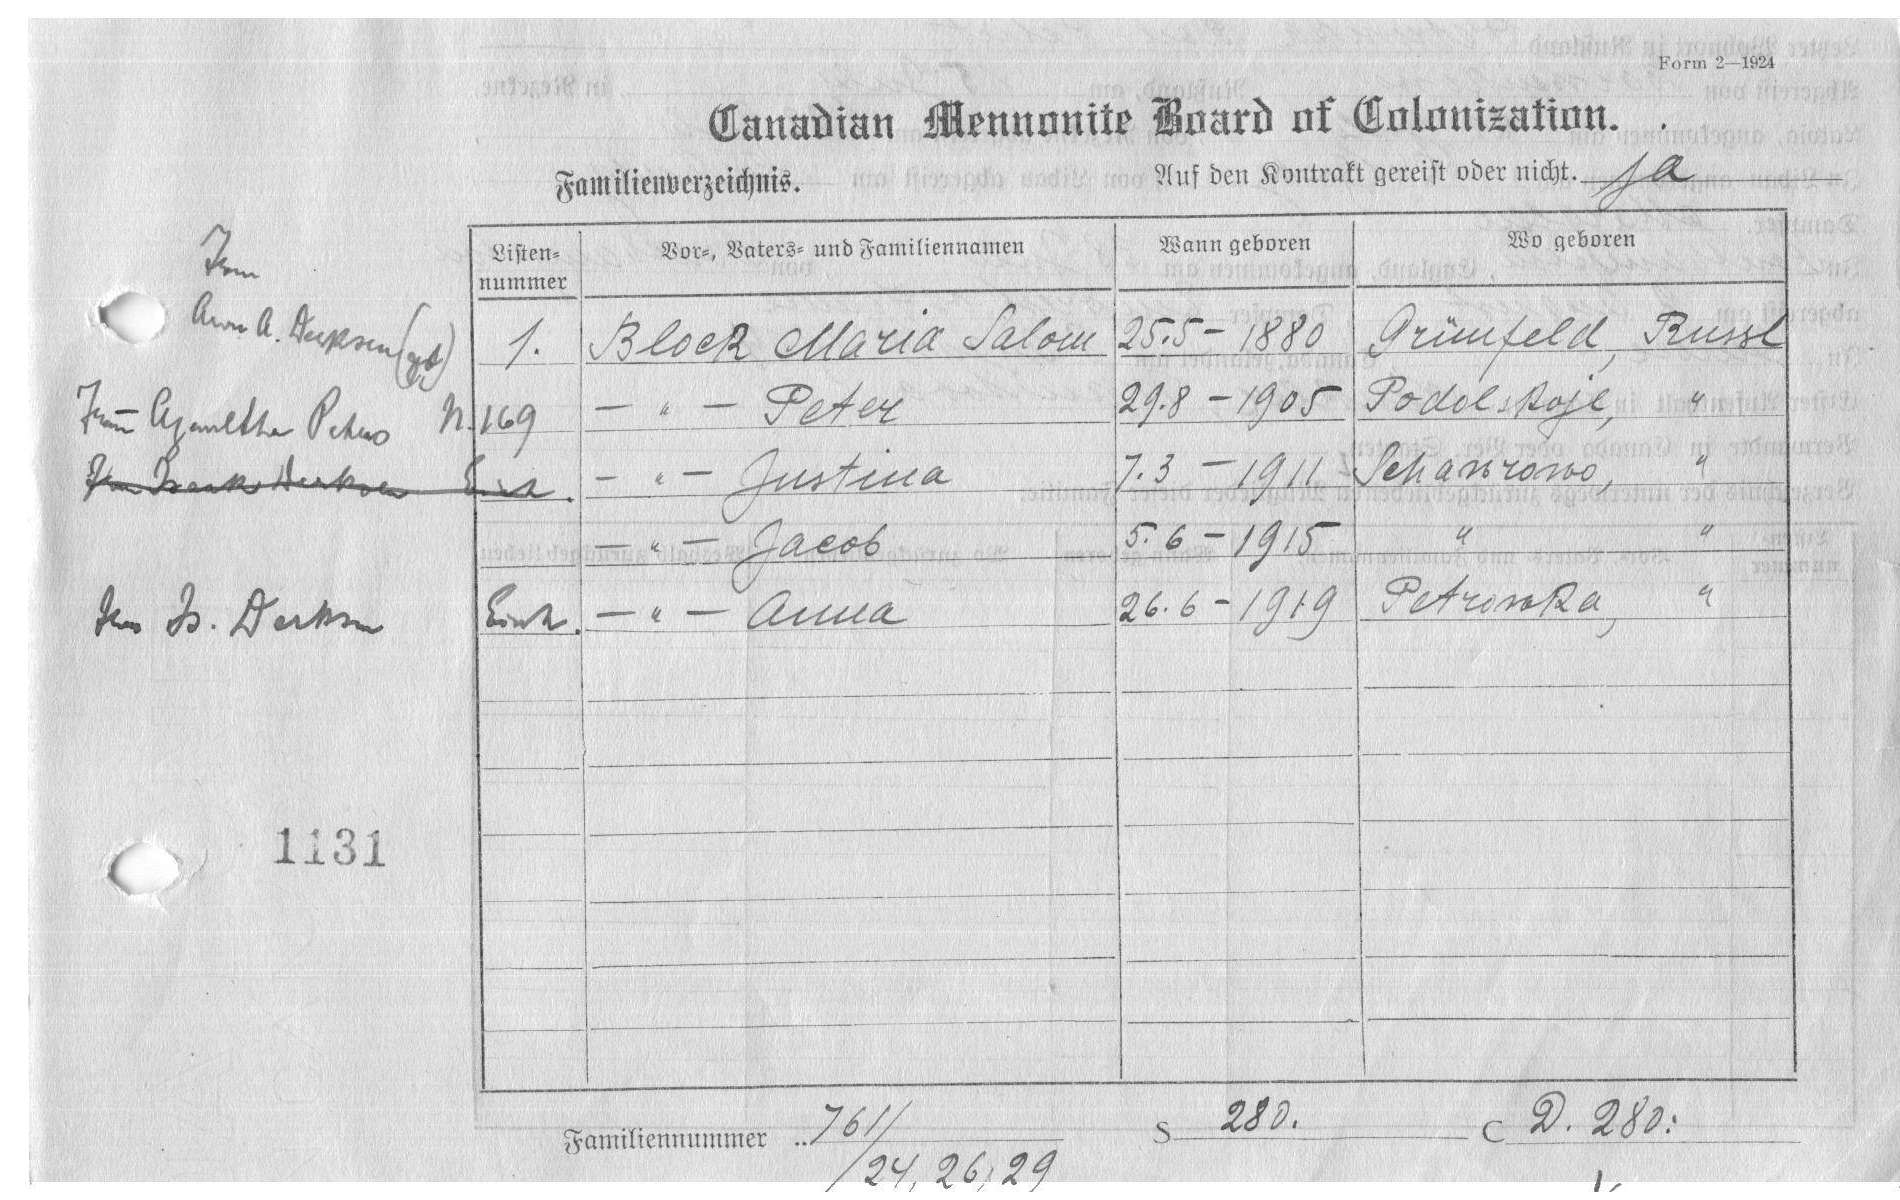 Form 2—1924
Canadian Mennonite Board of Colonization.
Familienverzeichnis. Auf den Kontrakt gereist oder nicht. ja
Listen-nummer Vor-, Vaters- und Familiennamen Wann geboren Wo geboren
1. Block Maria Salom 25.5 – 1880 Grünfeld, Russl
Aron A. Derksen
— " — Peter 29.8 – 1905 Podolskoje, "
Aganetha Peters N. 169
— " — Justina 7.3 – 1911 Schawrowo, "
— " — Jacob 5.6 – 1915 " "
Is. Derksen — " — Anna 26.6 – 1919 Petrowka, "
1131
Familiennummer 761/ S 280. C D. 280:
/24, 26, 29